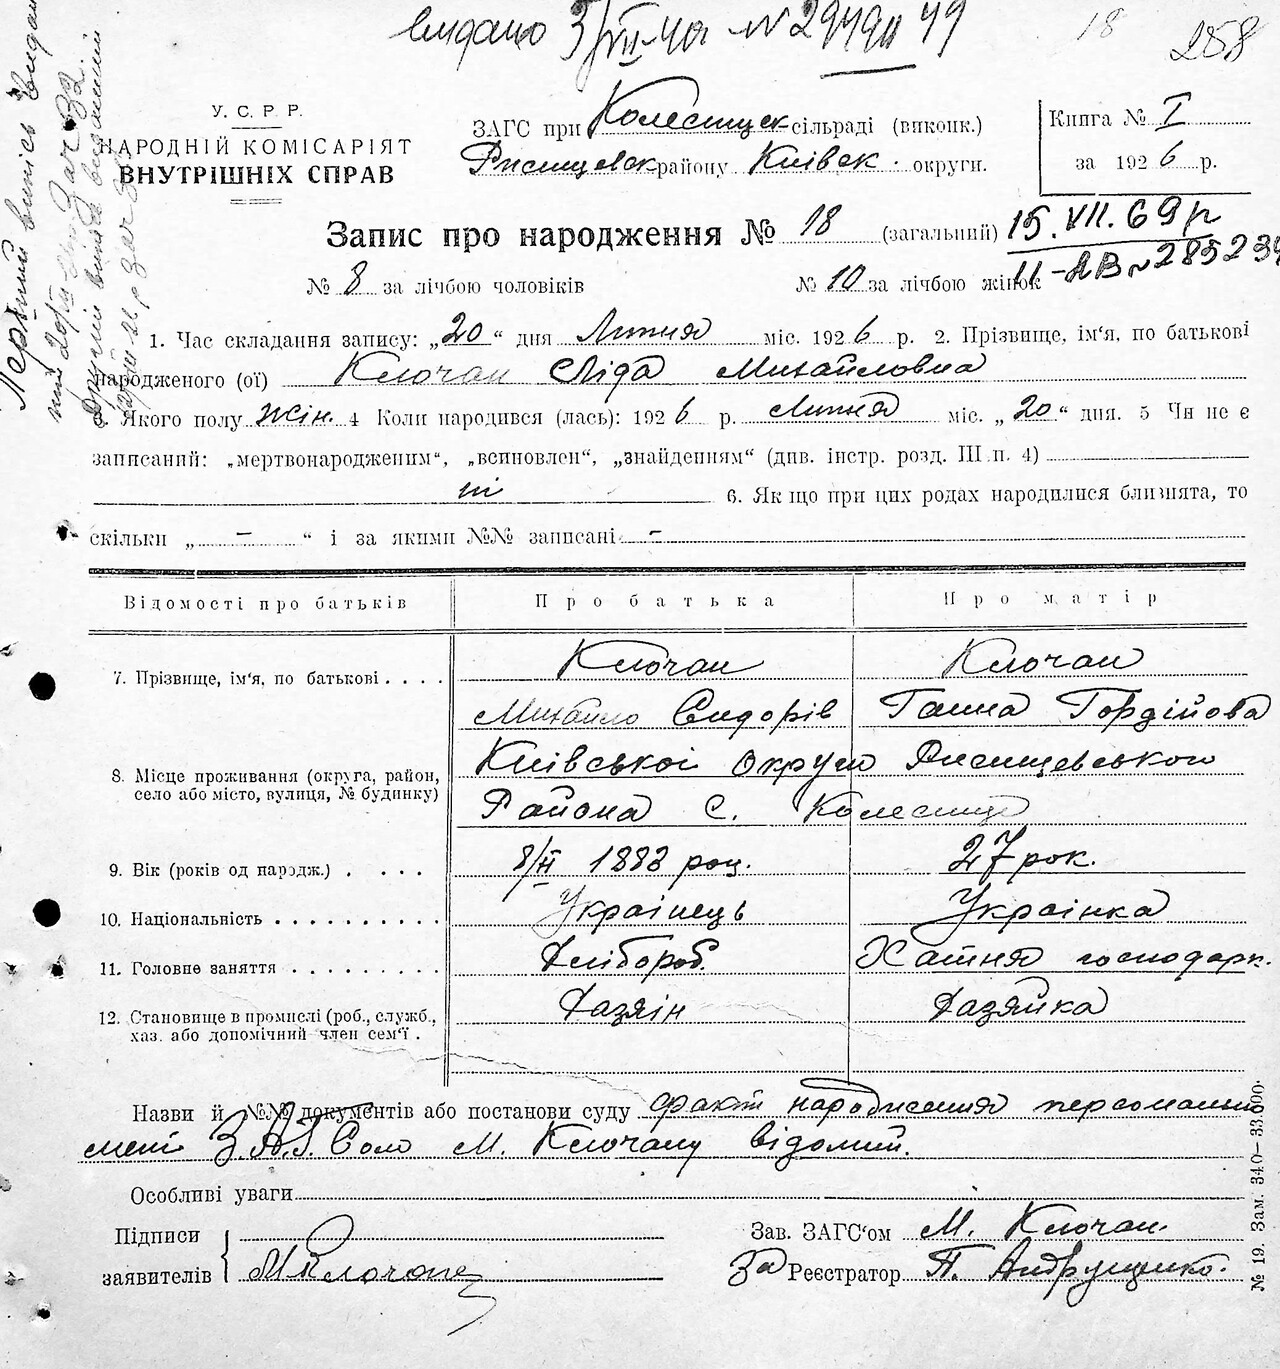 видано 3/VII-41 № 2949 49
18
258
У. С. Р. Р.
НАРОДНІЙ КОМІСАРІЯТ
ВНУТРІШНІХ СПРАВ
ЗАГС при Колесищек сільраді (виконк.)
Ржищевск району Київськ. округи.
Книга № I
за 1926 р.
Запис про народження № 18 (загальний)
15.VII.69 р
II-АВ № 285234
№ 8 за лічбою чоловіків № 10 за лічбою жінок
1. Час складання запису: „20“ дня Липня міс. 1926 р. 2. Прізвище, ім‘я, по батькові
народженого (ої) Ключан Ліда Михайловна
3. Якого полу жін. 4 Коли народився (лась): 1926 р. Липня міс. „20“ дня. 5 Чи не є
записаний: „мертвонародженим“, „всиновлен“, „знайденням“ (див. інстр. розд. III п. 4)
ні 6. Якщо при цих родах народилися близнята, то
скільки „ - “ і за якими №№ записані -
Відомості про батьків Про батька Про матір
7. Прізвище, ім‘я, по батькові . . . . Ключан Ключан
Михайло Сидорів Ганна Гордійова
8. Місце проживання (округа, район, Київської округи Ржищевського
село або місто, вулиця, № будинку) Района с. Колесище
9. Вік (років од народж.) . . . . 8/II 1883 роц. 27 рок.
10. Національність . . . . . . . . . . Українець Українка
11. Головне заняття . . . . . . . . . Хлібороб. Хатня господарк.
12. Становище в промислі (роб., служб., Хазяїн Хазяйка
хаз. або допомічний член сем‘ї .
Назви й №№ документів або постанови суду факт народження персонально
мені З.А.Г.Сом М. Ключану відомий.
Особливі уваги
Підписи
заявителів МКлючан
Зав. ЗАГС‘ом М. Ключан.
За Реєстратор П. Андрущенко.
№ 19. Зам. 340—33.000.